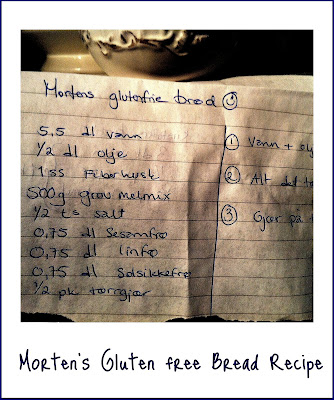 Mortens glutenfrie brød ☺
5,5 dl vann
1/2 dl olje
1 ss Fiberhusk
500g grov melmix
1/2 ts salt
0,75 dl Sesamfrø
0,75 dl linfrø
0,75 dl Solsikkefrø
1/2 pk tørrgjær
① Vann + olj
② Alt det t
③ Gjær på t
Morten's Gluten free Bread Recipe